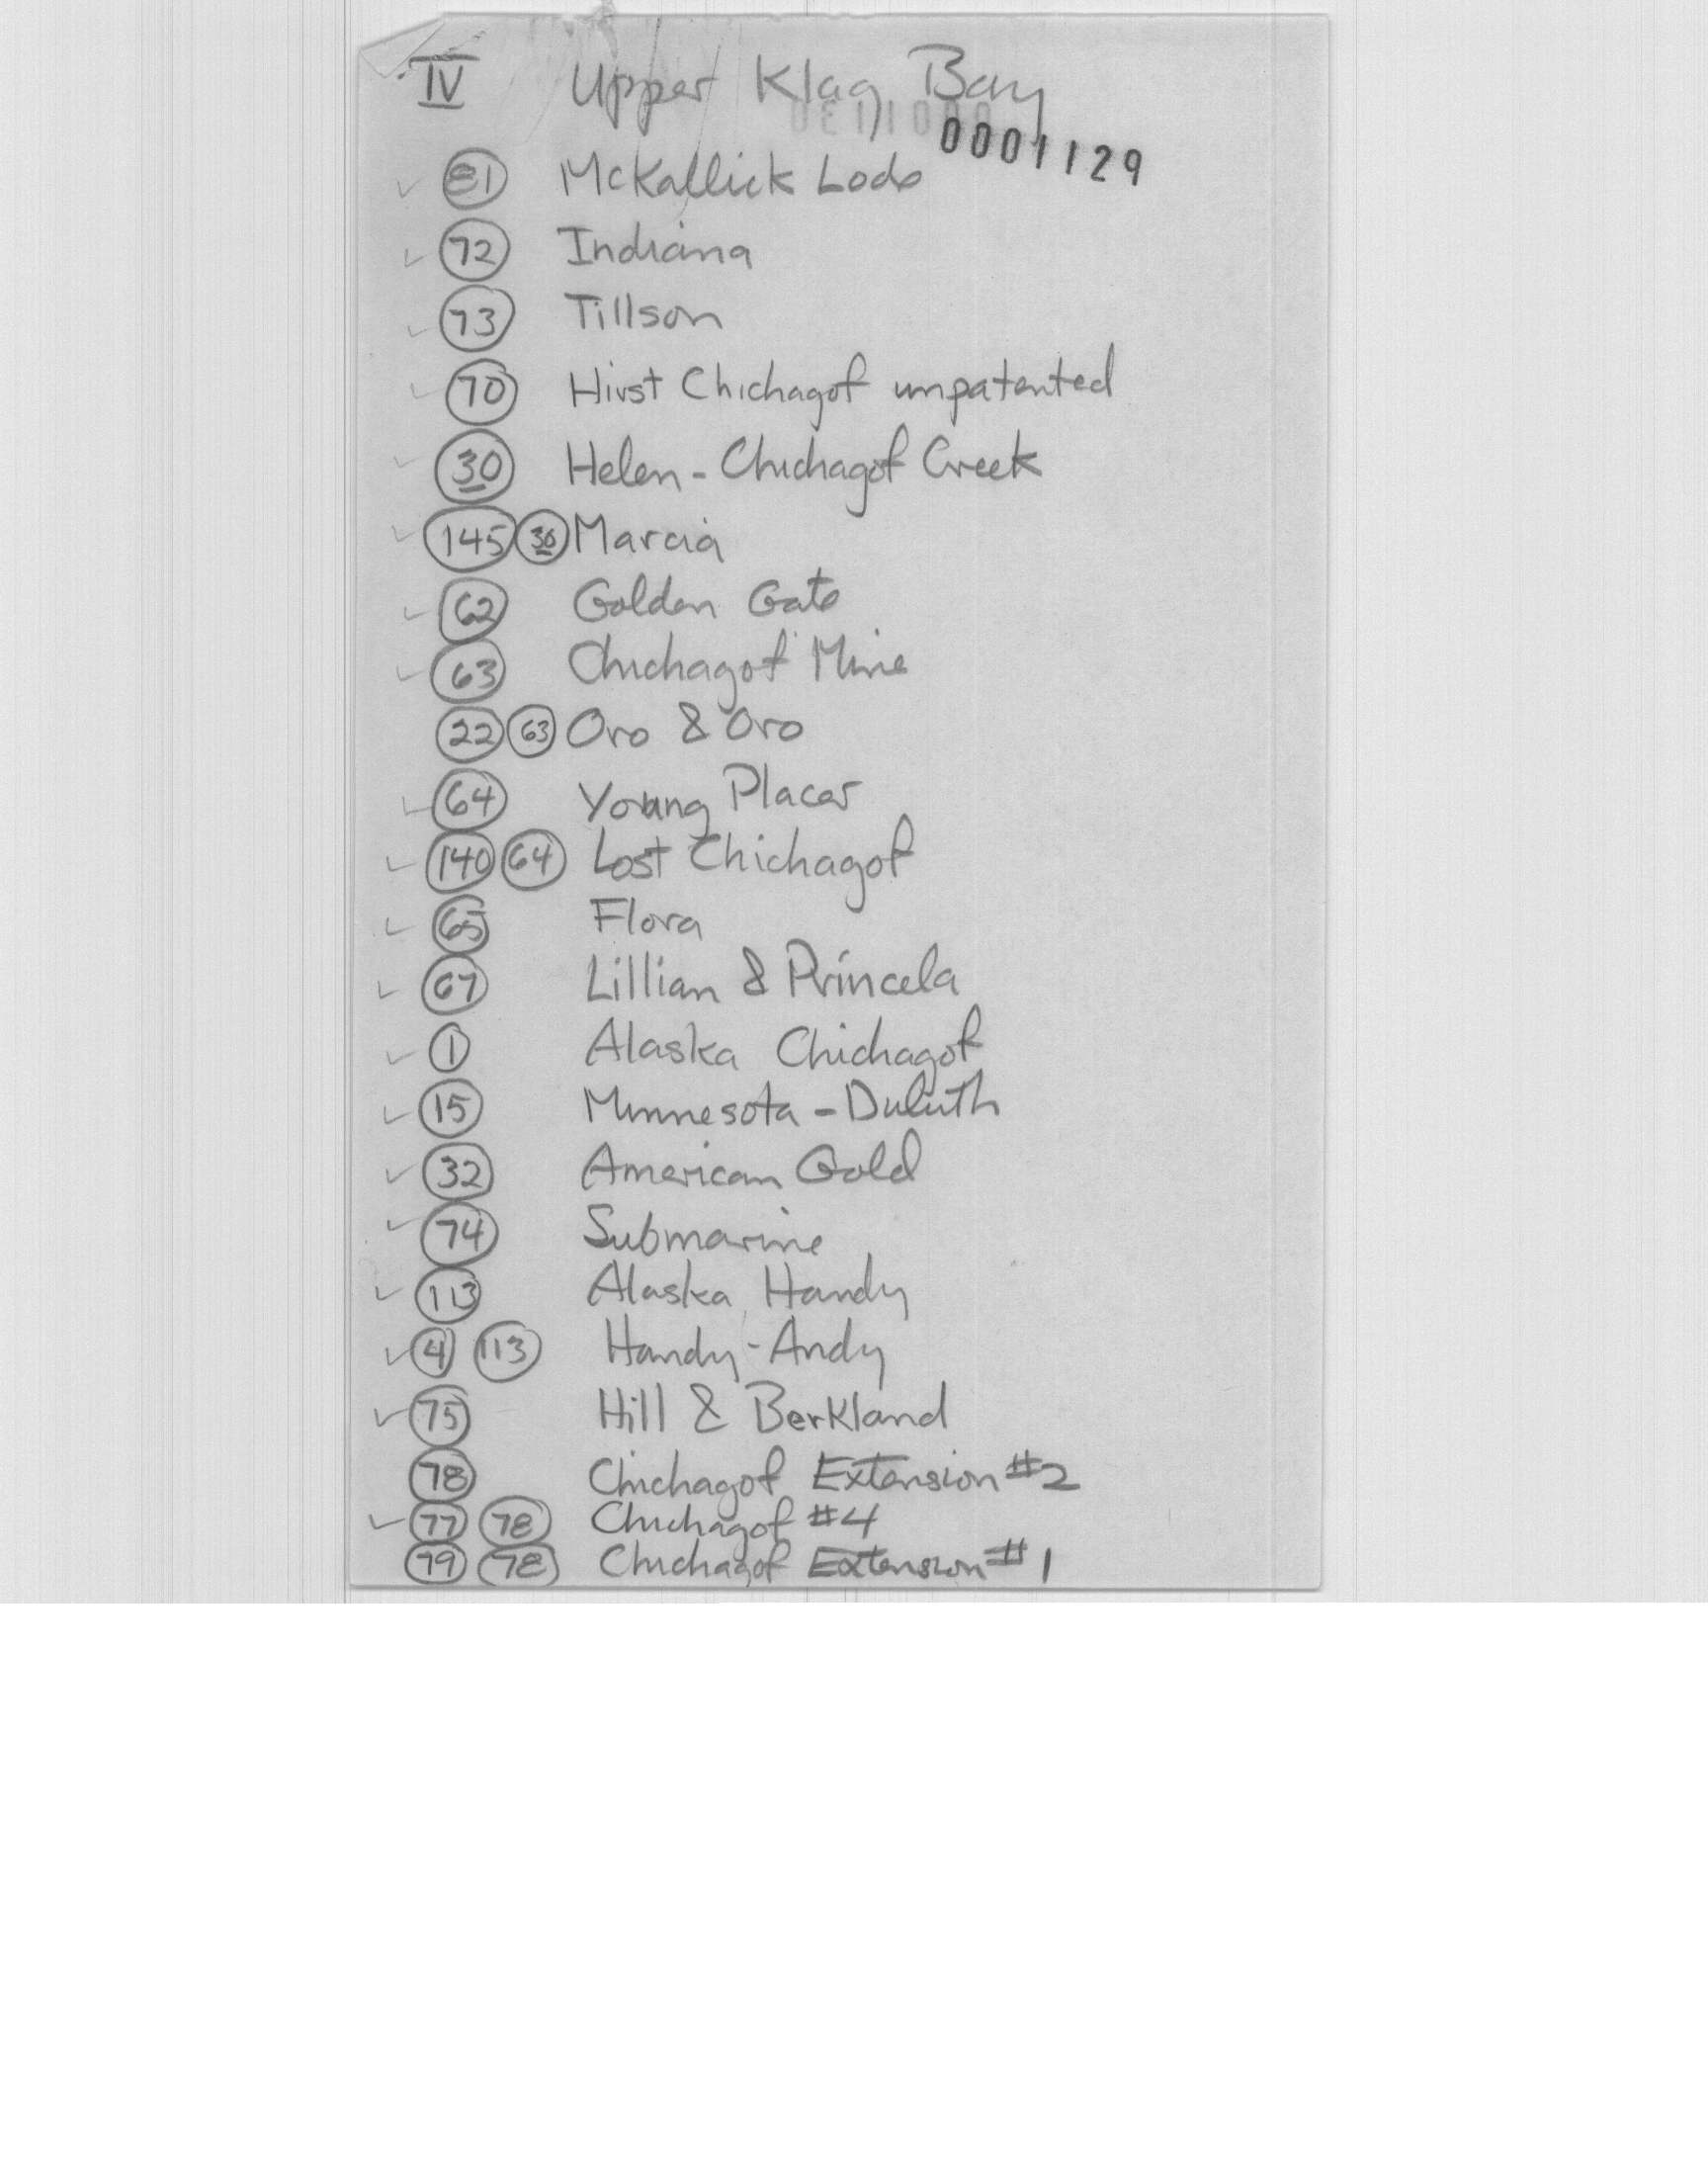 IV Upper Klag Bay
0001129
✓ 81 McKallick Lode
✓ 72 Indiana
✓ 73 Tillson
✓ 70 Hirst Chichagof unpatented
✓ 30 Helen - Chichagof Creek
✓ 145 30 Marcia
✓ 62 Golden Gate
✓ 63 Chichagof Mine
22 63 Oro & Oro
✓ 64 Young Placer
✓ 140 64 Lost Chichagof
✓ 65 Flora
✓ 67 Lillian & Princela
✓ 1 Alaska Chichagof
✓ 15 Minnesota - Duluth
✓ 32 American Gold
✓ 74 Submarine
✓ 113 Alaska Handy
✓ 4 113 Handy-Andy
✓ 75 Hill & Berkland
78 Chichagof Extension #2
✓ 77 78 Chichagof #4
79 78 Chichagof Extension #1